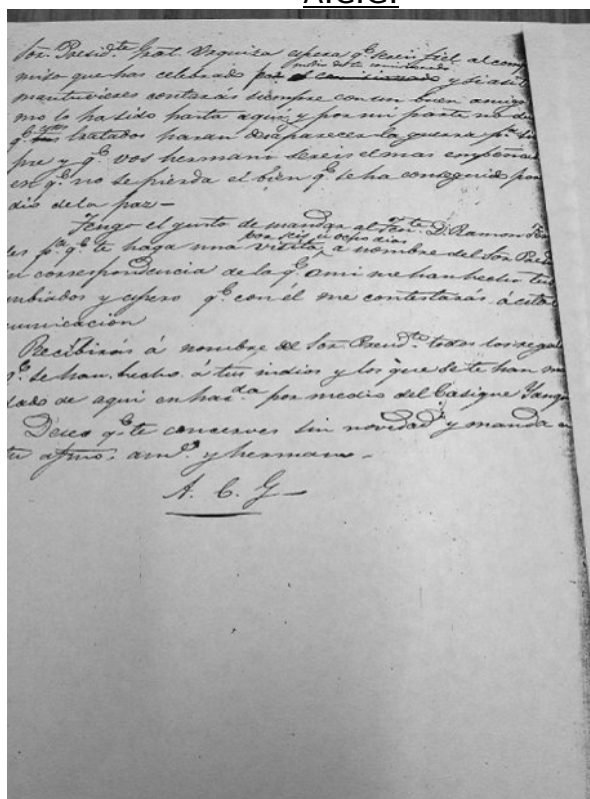 A.C.G.
Sor. Presid.te Gral. Urquiza espera q.e sereis fiel al com
medio de tu comisionado
miso que has celebrado por el comisionado y si asi l
mantuvieses contarás siempre con un buen amigo
mo lo ha sido hasta aquí, y por mi parte no du
q.e tratados haran desaparecer la guerra p.a si
pre y q.e vos hermano sereis el mas empeña
en q.e no se pierda el bien q.e se ha conseguido por
dio de la paz –
Tengo el gusto de mandar al Ten.te D. Ramon
por seis u ocho dias
p.a q.e te haga una visita, a nombre del Sor. Presid
su correspondencia de la q.e a mi me han hecho tus
nbiados y espero q.e con él me contestarás á esta
municación
Recibirás á nombre del Sor. Presid.te todos los regal
q.e se han hecho á tus indios y los que de te han m
dado de aqui en had.a por medio del Casique Yanq
Deseo q.e te concerves sin novedad y manda a
tu afmo. am.o y hermano –
A. C. G –